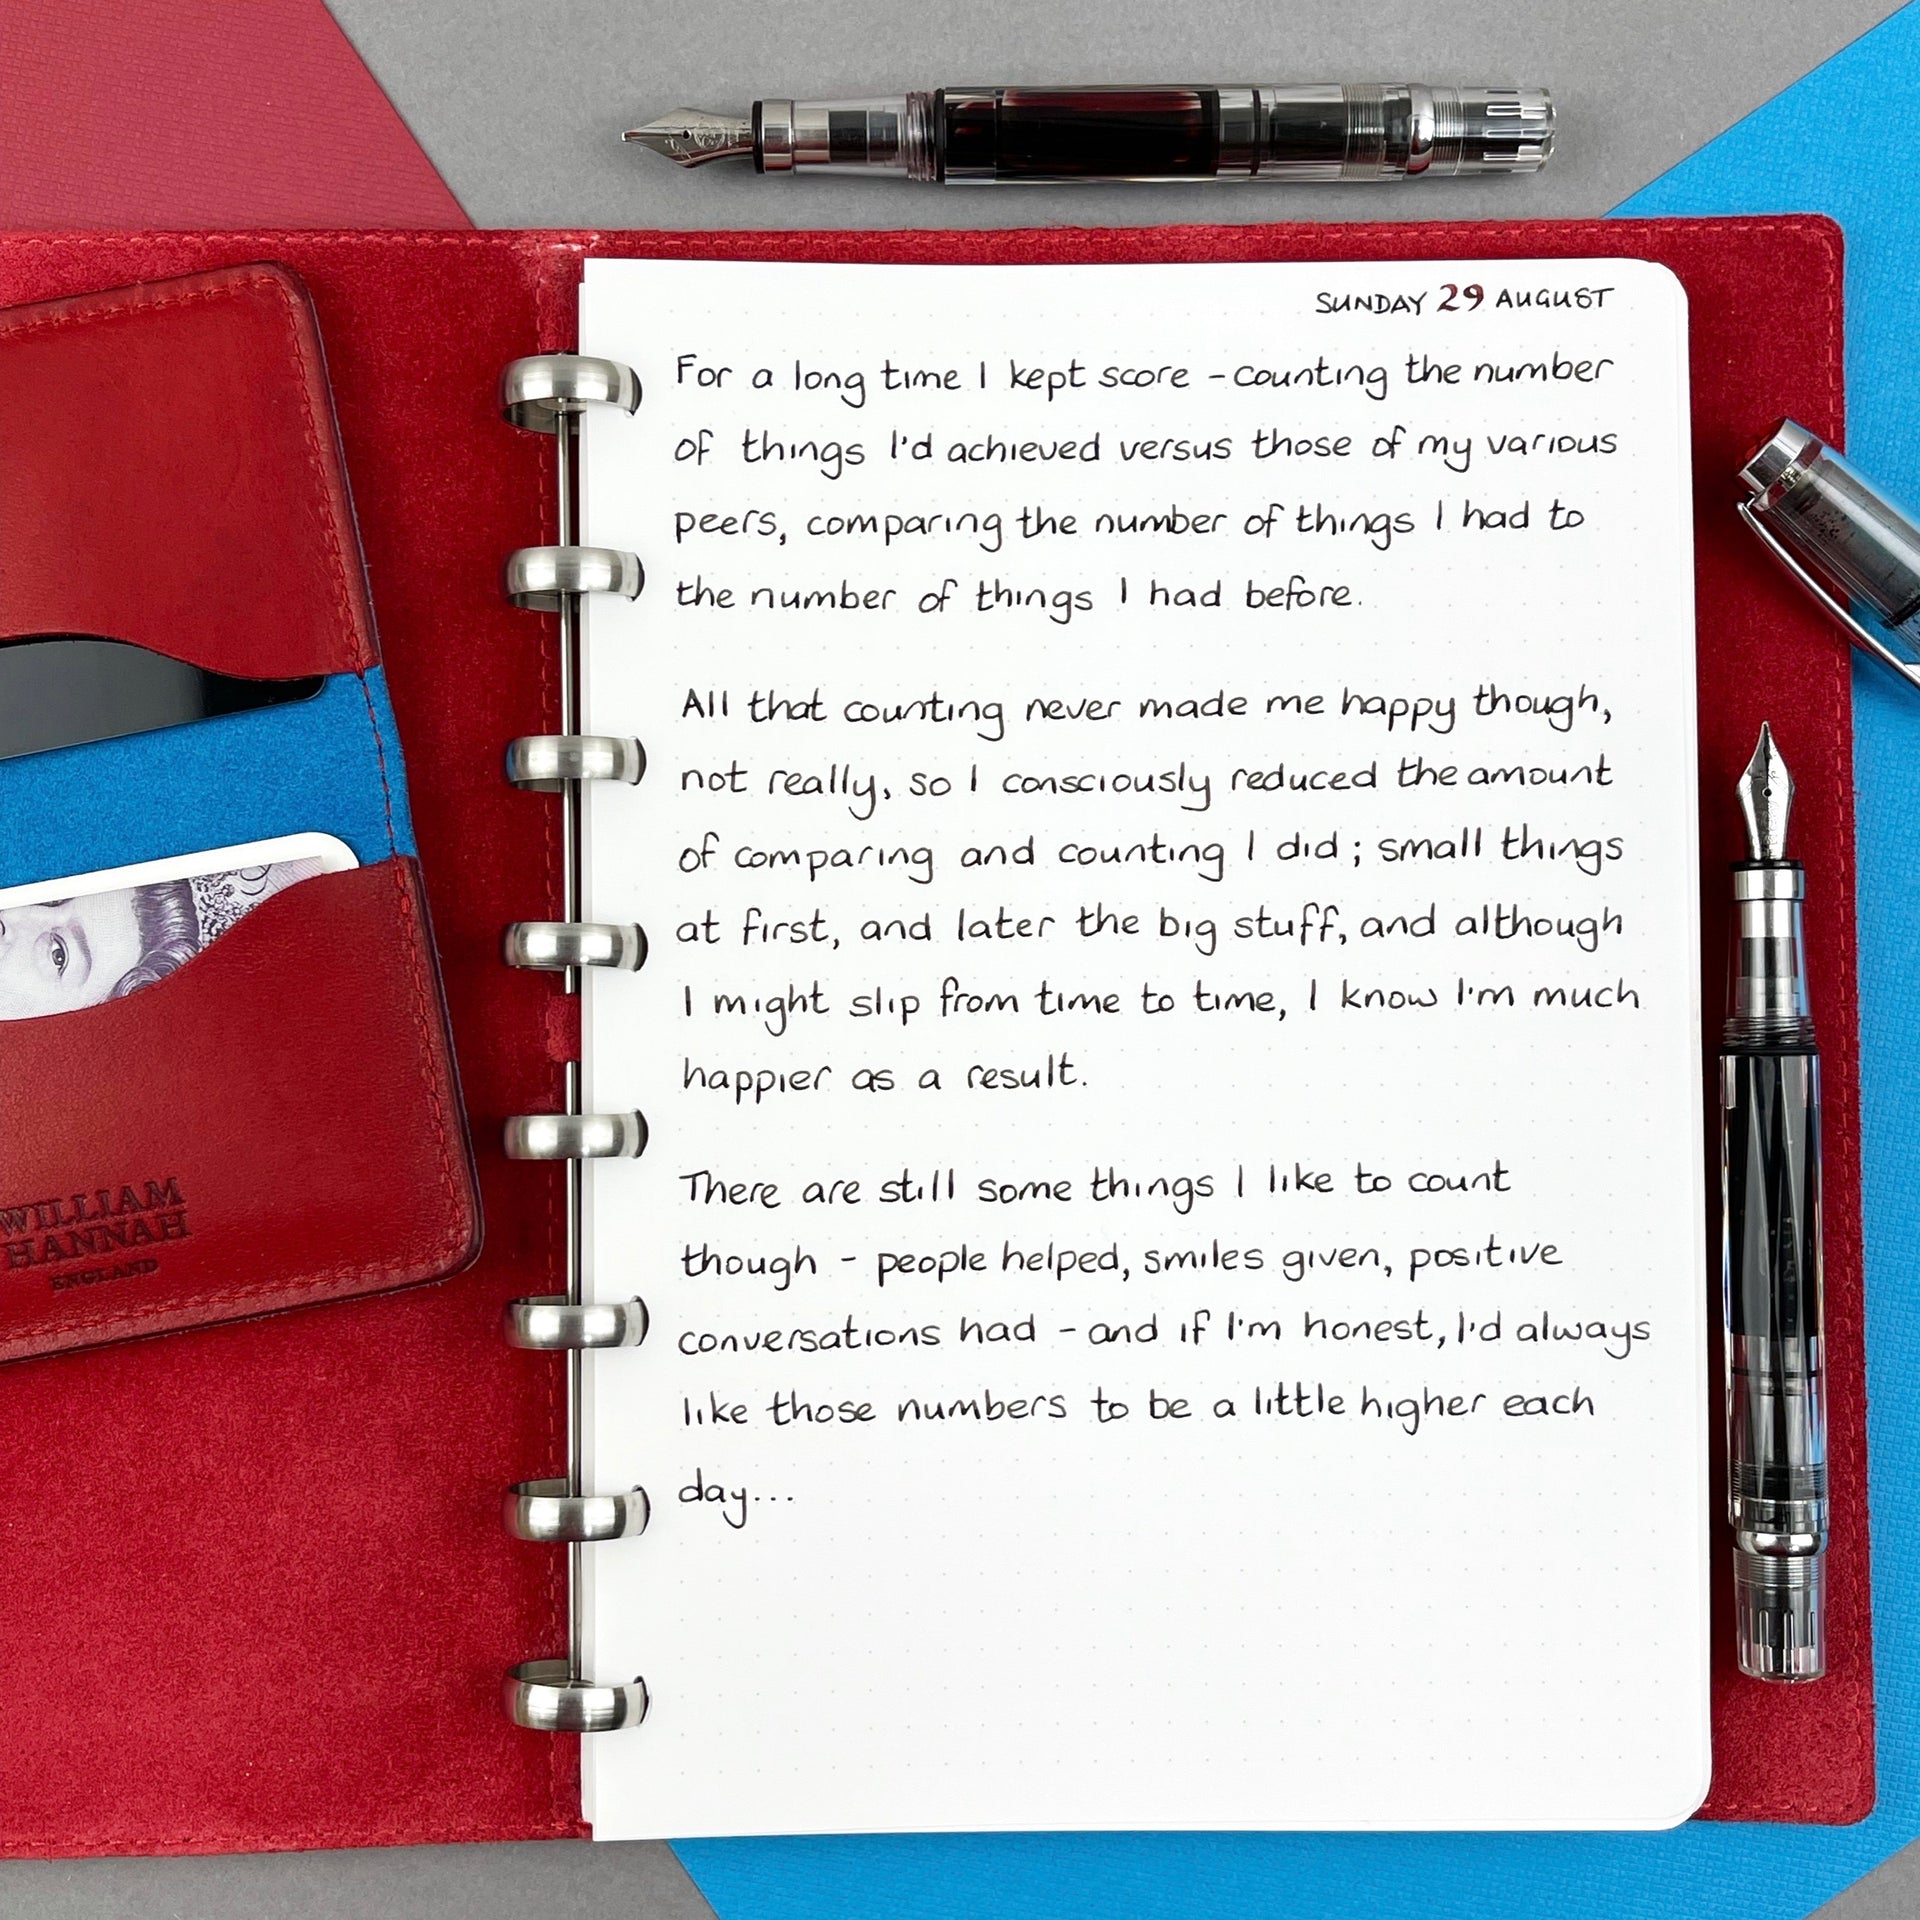 SUNDAY 29 AUGUST
For a long time I kept score - counting the number
of things I'd achieved versus those of my various
peers, comparing the number of things I had to
the number of things I had before.
All that counting never made me happy though,
not really, so I consciously reduced the amount
of comparing and counting I did; small things
at first, and later the big stuff, and although
I might slip from time to time, I know I'm much
happier as a result.
There are still some things I like to count
though - people helped, smiles given, positive
conversations had - and if I'm honest, I'd always
like those numbers to be a little higher each
day...
WILLIAM
HANNAH
ENGLAND